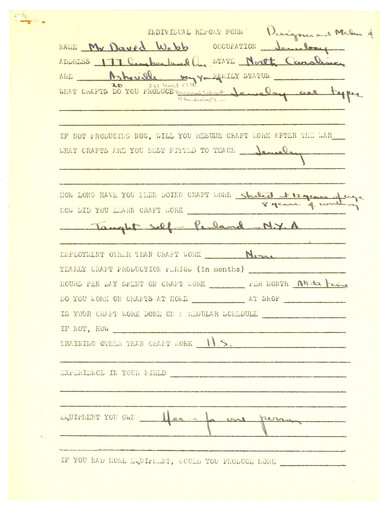 INDIVIDUAL REPORT FORM Designer and Maker of
NAME Mr David Webb OCCUPATION Jewelry
ADDRESS 177 Cumberland Ave STATE North Carolina
AGE Asheville very young FAMILY STATUS
20
WHAT CRAFTS DO YOU PRODUCE Jewelry all types
IF NOT PRODUCING NOW, WILL YOU RESUME CRAFT WORK AFTER THE WAR
WHAT CRAFTS ARE YOU BEST FITTED TO TEACH Jewelry
HOW LONG HAVE YOU BEEN DOING CRAFT WORK Started at 12 years of age
8 years of working
HOW DID YOU LEARN CRAFT WORK
Taught self - Penland - N.Y.A
EMPLOYMENT OTHER THAN CRAFT WORK None
YEARLY CRAFT PRODUCTION PERIOD (in months)
HOURS PER DAY SPENT ON CRAFT WORK PER MONTH All the time
DO YOU WORK ON CRAFTS AT HOME AT SHOP
IS YOUR CRAFT WORK DONE ON A REGULAR SCHEDULE
IF NOT, HOW
TRAINING OTHER THAN CRAFT WORK H.S.
EXPERIENCE IN YOUR FIELD
EQUIPMENT YOU OWN Yes - for one person
IF YOU HAD MORE EQUIPMENT, COULD YOU PRODUCE MORE